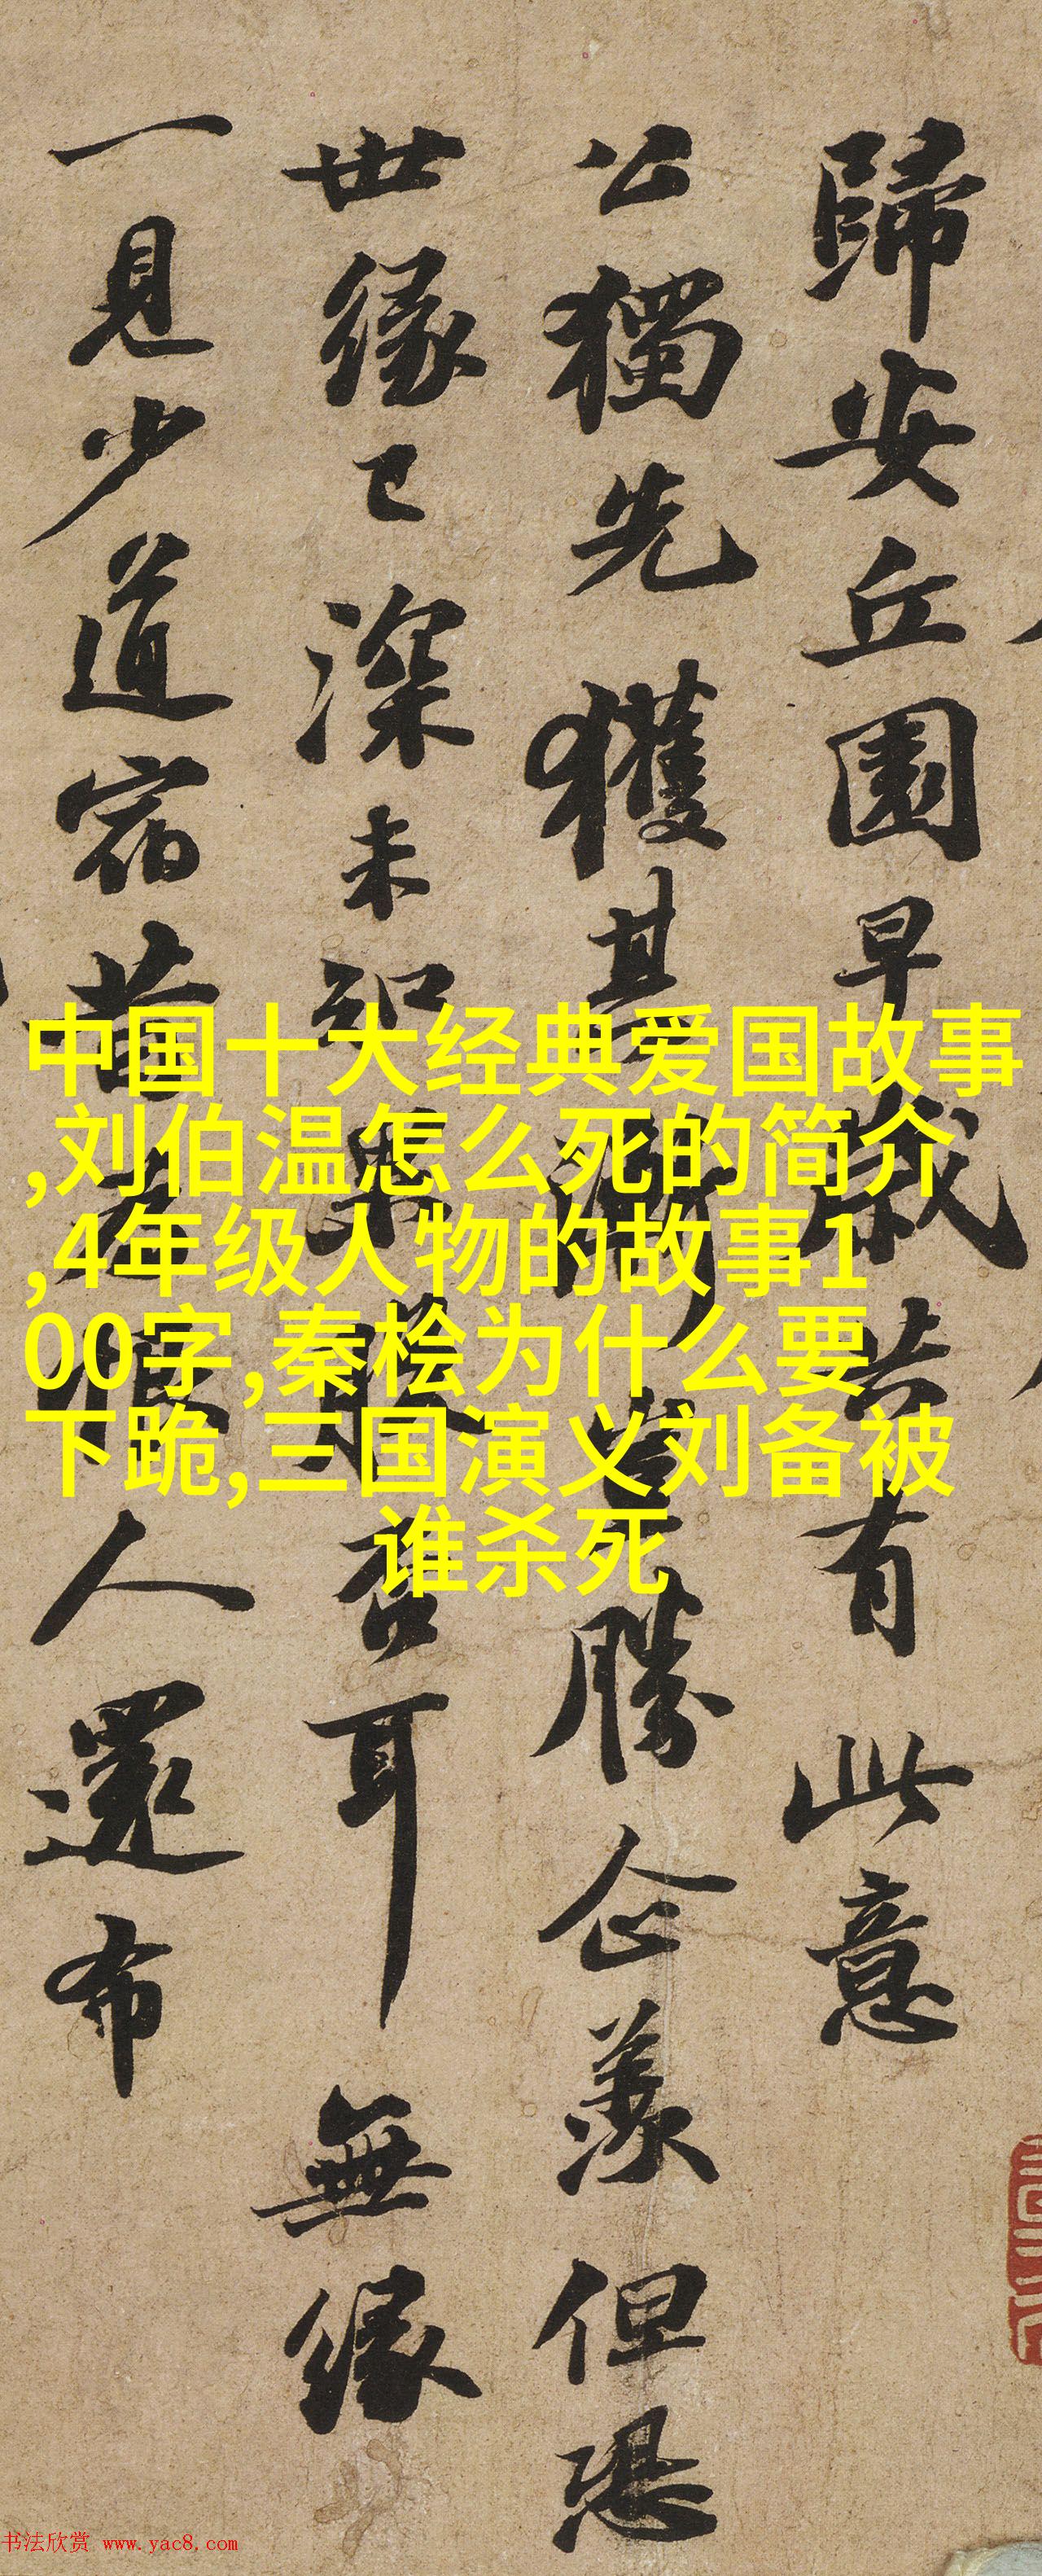 歸安丘園早歲共有此意
公獨先獲其漸豈勝企羨但恐
世緣已深未知果脫否耳無緣
一見少道宿昔為恨人還布
中国十大经典爱国故事
,刘伯温怎么死的简介
,4年级人物的故事1
00字,秦桧为什么要
下跪,三国演义刘备被
谁杀死
书法欣赏 www.yac8.com